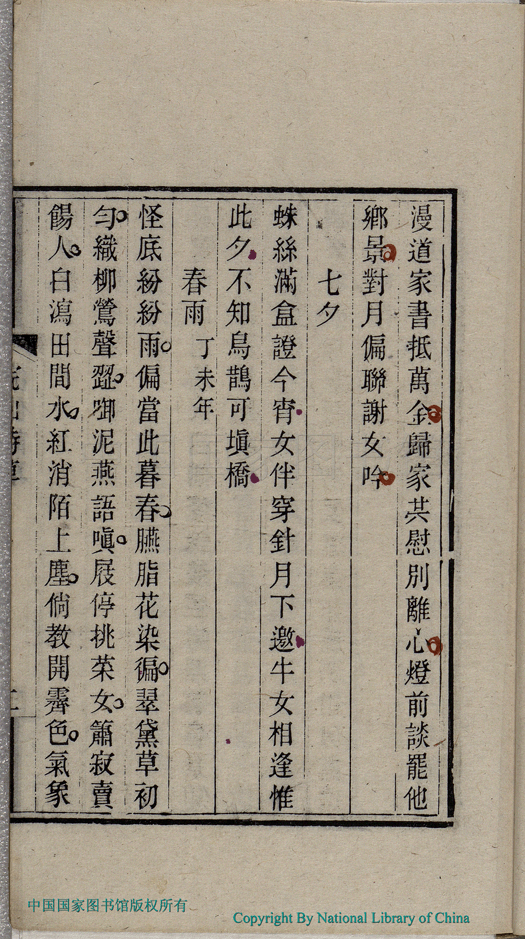 漫道家書抵萬金歸家共慰別離心燈前談罷他
鄉景對月偏聯謝女吟
七夕
蛛絲滿盒證今宵女伴穿針月下邀牛女相逢惟
此夕不知烏鵲可塡橋
春雨 丁未年
怪底紛紛雨偏當此暮春臙脂花染徧翠黛草初
勻織柳鶯聲澀啣泥燕語嗔屐停挑菜女簫寂賣
餳人白瀉田間水紅消陌上塵倘教開霽色氣象
詩草
二
中国国家图书馆版权所有
Copyright By National Library of China